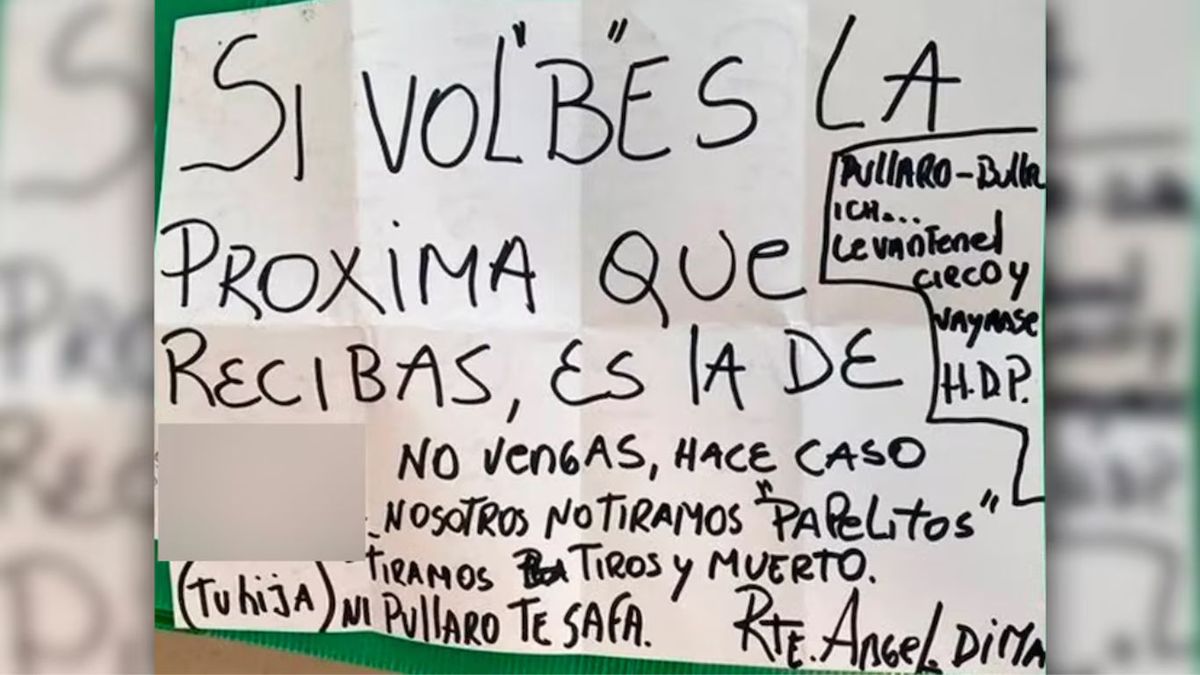 SI VOL"B"ES LA
PROXIMA QUE
RECIBAS, ES LA DE
PULLARO-Bullr
ICH...
LEVANTEN el
CIRCO Y
VAYANSE
H.D.P.
NO VENGAS, HACE CASO
NOSOTROS NO TIRAMOS "PAPELITOS"
TIRAMOS TIROS Y MUERTO.
(Tu hija) NI PULLARO TE SAFA.
RTE. ANGEL DIMA